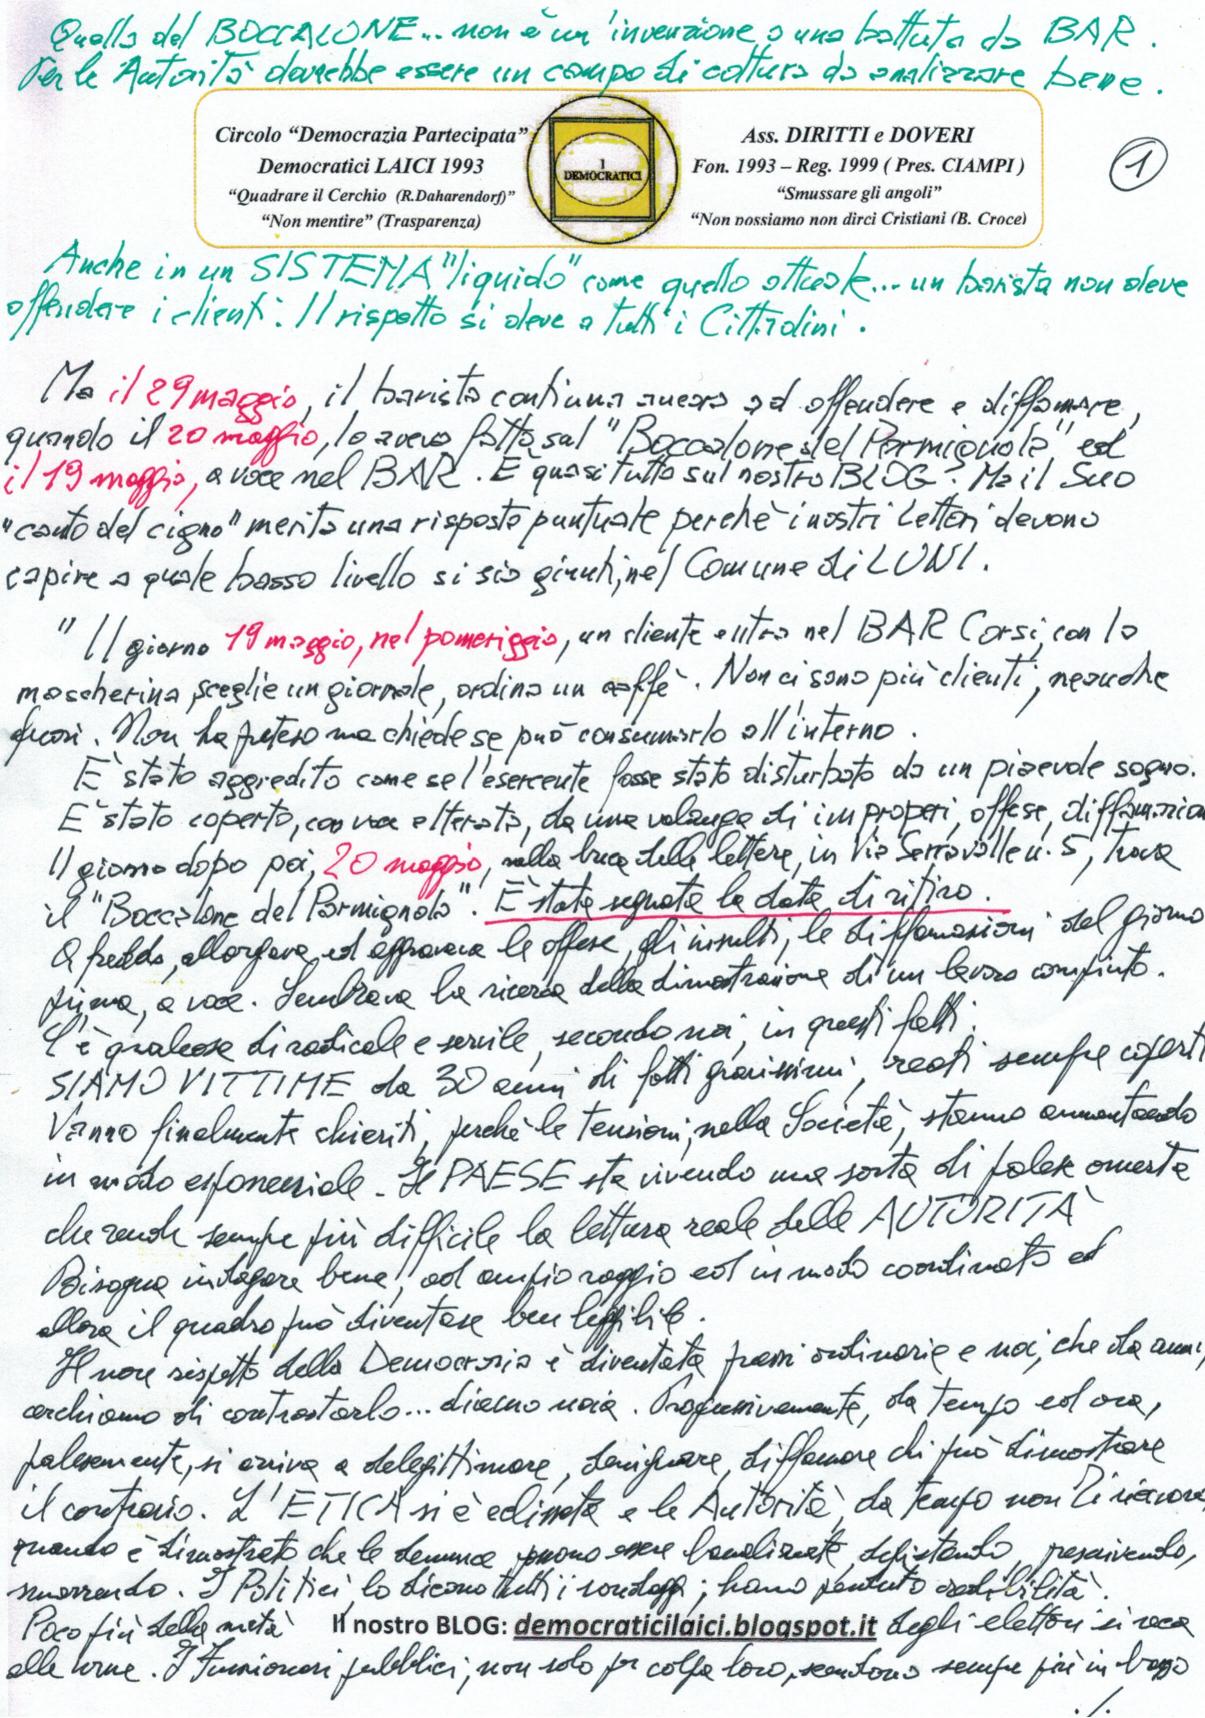 Quello del BOCCALONE... non è un'invenzione o una battuta da BAR.
Per le Autorità dovrebbe essere un campo di coltura da analizzare bene.
Circolo “Democrazia Partecipata”
Democratici LAICI 1993
“Quadrare il Cerchio (R.Daharendorf)”
“Non mentire” (Trasparenza)
I
DEMOCRATICI
Ass. DIRITTI e DOVERI
Fon. 1993 – Reg. 1999 ( Pres. CIAMPI )
“Smussare gli angoli”
“Non possiamo non dirci Cristiani (B. Croce)
1
Anche in un SISTEMA "liquido" come quello attuale... un barista non deve
offendere i clienti. Il rispetto si deve a tutti i Cittadini.
Ma il 29 maggio, il barista continua ancora ad offendere e diffamare,
quando il 20 maggio, lo aveva fatto sul "Boccalone del Parmignola" ed
il 19 maggio, a voce nel BAR. È quasi tutto sul nostro BLOG. Ma il Suo
"canto del cigno" merita una risposta puntuale perchè i nostri Lettori devono
capire a quale basso livello si sia giunti, nel Comune di LUNI.
"Il giorno 19 maggio, nel pomeriggio, un cliente entra nel BAR Corsi, con la
mascherina sceglie un giornale, ordina un caffè. Non ci sono più clienti, neanche
fuori. Non ha preteso ma chiede se può consumarlo all'interno.
E' stato aggredito come se l'esercente fosse stato disturbato da un piaevole sogno.
E' stato coperto, con voce alterata, da una valanga di improperi, offese, diffamazioni
Il giorno dopo poi, 20 maggio, nella buca delle lettere, in Via Serravalle n. 5, trova
il "Boccalone del Parmignola". È stata segnata la data di ritiro.
A freddo, allargava ed aggravava le offese, gli insulti, le diffamazioni del giorno
prima, a voce. Sembrava la ricerca della dimostrazione di un lavoro compiuto.
C'è qualcosa di radicale e servile, secondo noi, in questi fatti.
SIAMO VITTIME da 30 anni di fatti gravissimi, reati sempre coperti
Vanno finalmente chiariti, perchè le tensioni, nella Società, stanno aumentando
in modo esponenziale. Il PAESE sta vivendo una sorta di palese omertà
che rende sempre più difficile la lettura reale delle AUTORITÀ
Bisogna indagare bene, ad ampio raggio ed in modo coordinato ed
allora il quadro può diventare ben leggibile.
Il non rispetto della Democrazia è diventata prassi ordinaria e noi, che da anni,
cerchiamo di contrastarlo... diamo noia. Progressivamente, da tempo ed ora,
palesemente, si arriva a delegittimare, denigrare, diffamare chi può dimostrare
il contrario. L'ETICA si è eclissata e le Autorità, da tempo non Ti ricevono
quando è dimostrato che le denunce possono essere banalizzate, depistando, prescrivendo,
smarrendo. I Politici, lo dicono tutti i sondaggi, hanno perduto credibilità.
Poco più della metà degli elettori si reca
Il nostro BLOG: democraticilaici.blogspot.it
alle urne. I Funzionari pubblici, non solo per colpa loro, scendono sempre più in basso
./.